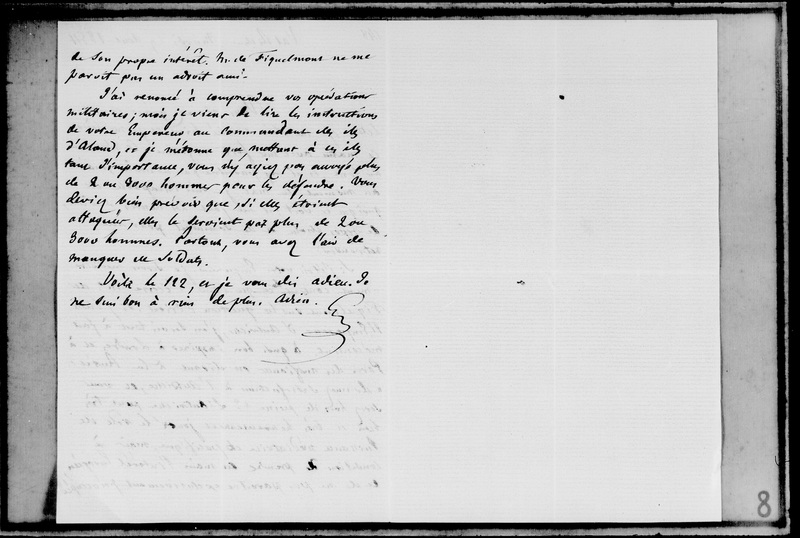 de son propre intérêt. M. de Fiquelmont ne me
paroit pas un adroit ami.
J'ai renoncé à comprendre vos opérations
militaires ; mais je viens de lire les instructions
de votre Empereur au commandant des iles
d'Aland, et je m'étonne que mettant à ces iles
tant d'importance, vous n'y ayiez pas envoyé plus
de 2 ou 3000 hommes pour les défendre. Vous
deviez bien prévoir que, si elles étoient
attaquées, elles le seroient par plus de 2 ou
3000 hommes. Partout, vous avez l'air de
manquer de soldats.
Voilà le 122, et je vous dis adieu. Je
ne suis bon à rien de plus. Adieu.
8